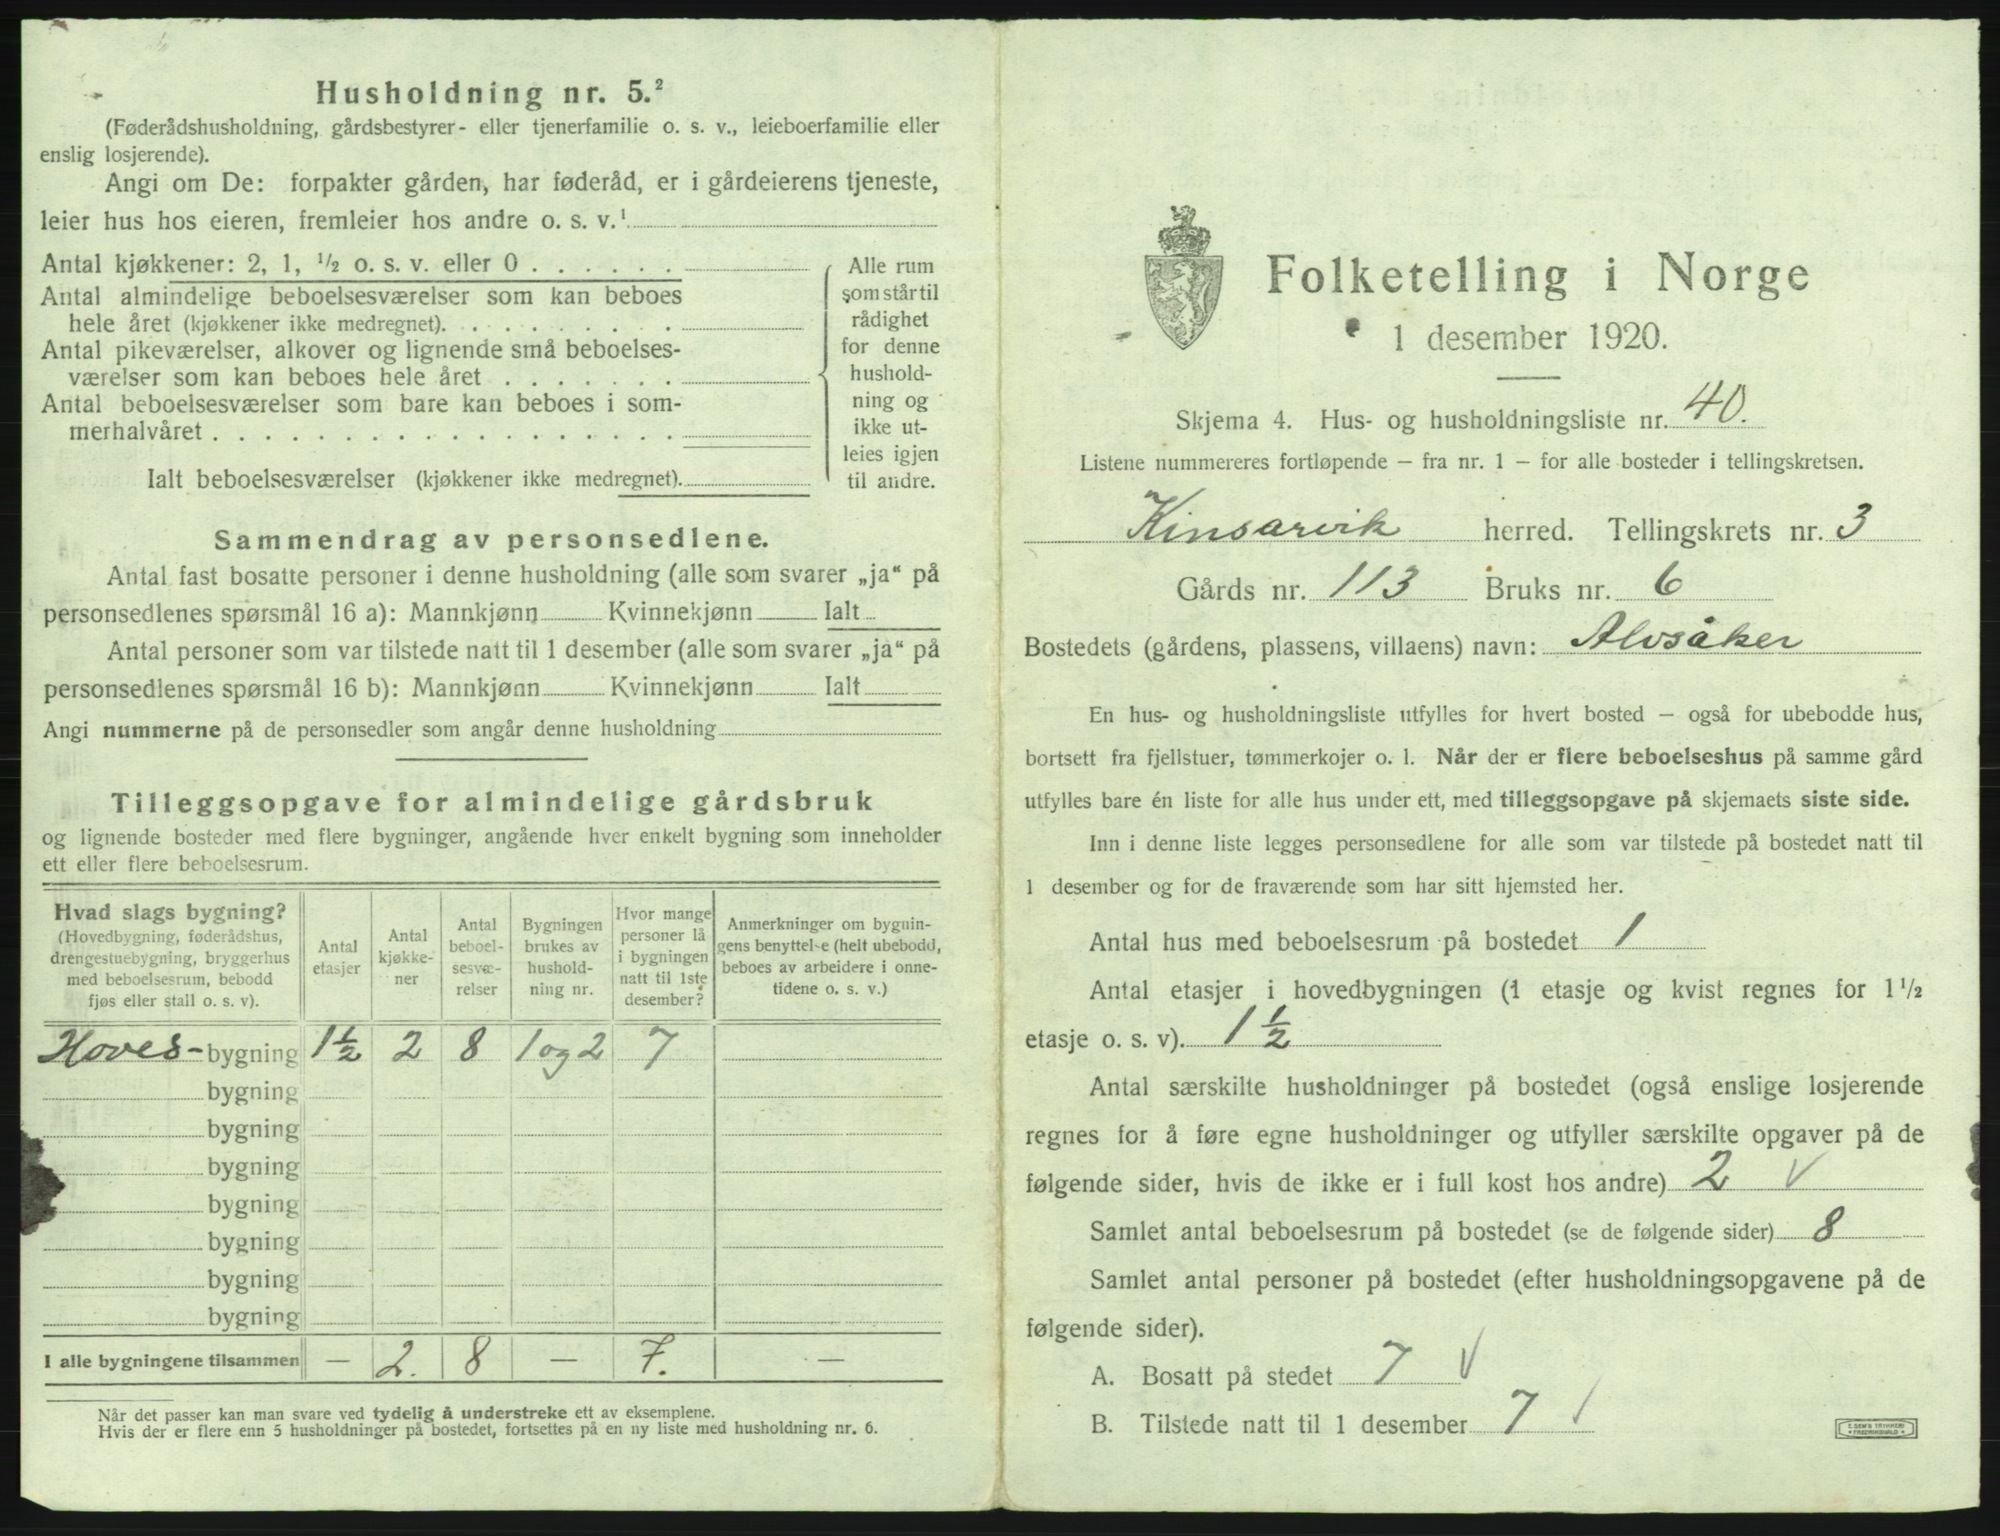 Husholdning nr. 5.²
(Føderådshusholdning, gårdsbestyrer- eller tjenerfamilie o. s. v., leieboerfamilie eller
enslig losjerende).
Angi om De: forpakter gården, har føderåd, er i gårdeierens tjeneste,
leier hus hos eieren, fremleier hos andre o. s. v.¹
Antal kjøkkener: 2, 1, ½ o. s. v. eller 0 . . . . . .
Antal almindelige beboelsesværelser som kan beboes
hele året (kjøkkener ikke medregnet). . . . . . . .
Antal pikeværelser, alkover og lignende små beboelses-
værelser som kan beboes hele året . . . . . . .
Antal beboelsesværelser som bare kan beboes i som-
merhalvåret . . . . . . . . . . . . . . . . . .
Ialt beboelsesværelser (kjøkkener ikke medregnet).
Alle rum
som står til
rådighet
for denne
hushold-
ning og
ikke ut-
leies igjen
til andre.
Sammendrag av personsedlene.
Antal fast bosatte personer i denne husholdning (alle som svarer „ja“ på
personsedlenes spørsmål 16 a): Mannkjønn Kvinnekjønn Ialt
Antal personer som var tilstede natt til 1 desember (alle som svarer „ja“ på
personsedlenes spørsmål 16 b): Mannkjønn Kvinnekjønn Ialt
Angi nummerne på de personsedler som angår denne husholdning
Tilleggsopgave for almindelige gårdsbruk
og lignende bosteder med flere bygninger, angående hver enkelt bygning som inneholder
ett eller flere beboelsesrum.
Hvad slags bygning?
(Hovedbygning, føderådshus,
drengestuebygning, bryggerhus
med beboelsesrum, bebodd
fjøs eller stall o. s. v).
Antal
etasjer
Antal
kjøkke-
ner
Antal
beboel-
sesvæ-
relser
Bygningen
brukes av
hushold-
ning nr.
Hvor mange
personer lå
i bygningen
natt til 1ste
desember?
Anmerkninger om bygnin-
gens benyttelse (helt ubebodd,
beboes av arbeidere i onne-
tidene o. s. v.)
Hoves- bygning 1½ 2 8 1 og 2 7
bygning
bygning
bygning
bygning
bygning
bygning
bygning
I alle bygningene tilsammen — 2. 8 — 7. —
Når det passer kan man svare ved tydelig å understreke ett av eksemplene.
Hvis der er flere enn 5 husholdninger på bostedet, fortsettes på en ny liste med husholdning nr. 6.
Folketelling i Norge
1 desember 1920.
Skjema 4. Hus- og husholdningsliste nr. 40.
Listene nummereres fortløpende – fra nr. 1 – for alle bosteder i tellingskretsen.
Kinsarvik herred. Tellingskrets nr. 3
Gårds nr. 113 Bruks nr. 6
Bostedets (gårdens, plassens, villaens) navn: Alvsåker
En hus- og husholdningsliste utfylles for hvert bosted – også for ubebodde hus,
bortsett fra fjellstuer, tømmerkojer o. l. Når der er flere beboelseshus på samme gård
utfylles bare én liste for alle hus under ett, med tilleggsopgave på skjemaets siste side.
Inn i denne liste legges personsedlene for alle som var tilstede på bostedet natt til
1 desember og for de fraværende som har sitt hjemsted her.
Antal hus med beboelsesrum på bostedet 1
Antal etasjer i hovedbygningen (1 etasje og kvist regnes for 1½
etasje o. s. v). 1½
Antal særskilte husholdninger på bostedet (også enslige losjerende
regnes for å føre egne husholdninger og utfyller særskilte opgaver på de
følgende sider, hvis de ikke er i full kost hos andre) 2 √
Samlet antal beboelsesrum på bostedet (se de følgende sider) 8
Samlet antal personer på bostedet (efter husholdningsopgavene på de
følgende sider).
A. Bosatt på stedet 7 √
B. Tilstede natt til 1 desember 7 /
E. SEM'S TRYKKERI
FREDRIKSHALD